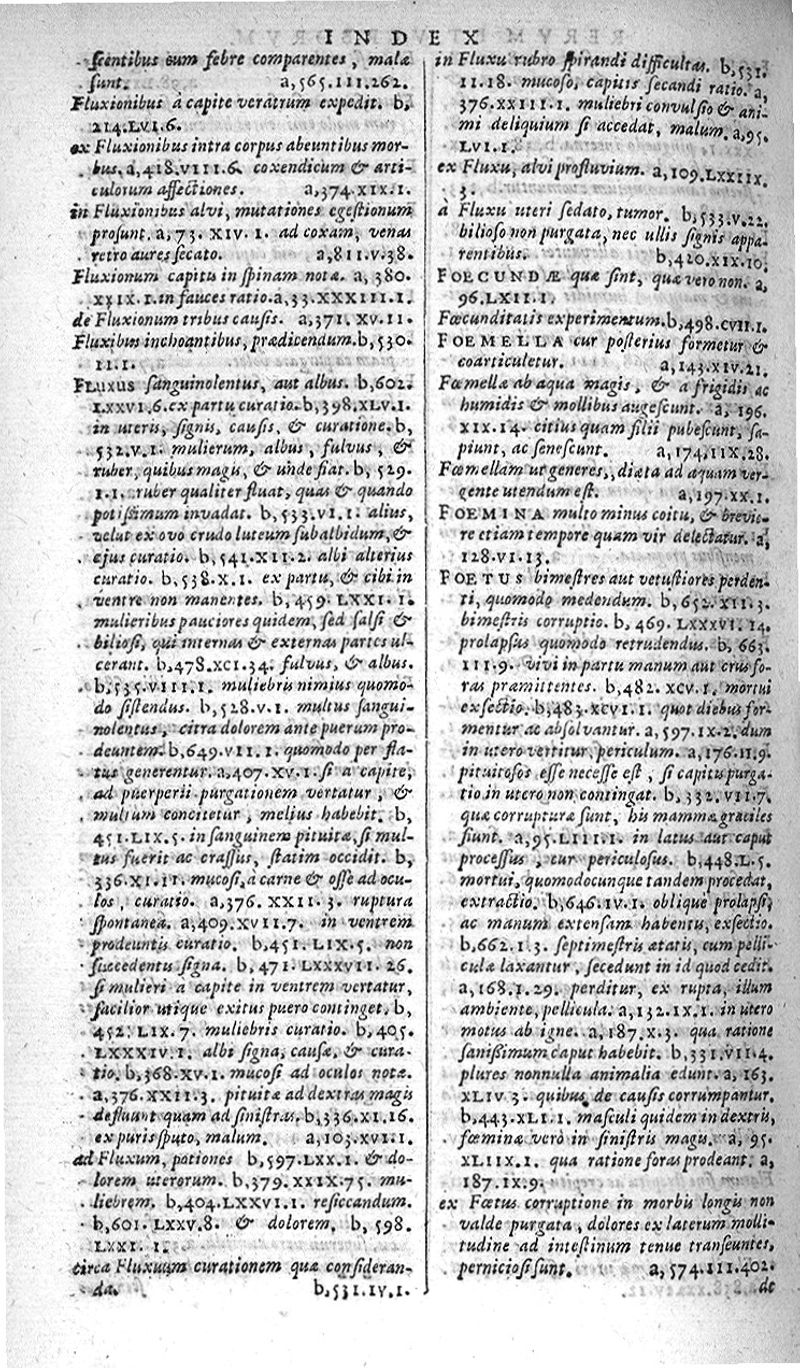 INDEX
scentibus cum febre comparentes, malæ
sunt. a,565.III.262.
Fluxionibus à capite veratrum expedit. b,
214.LVI.6.
ex Fluxionibus intra corpus abeuntibus mor-
bus. a,418.VIII.6. coxendicum & arti-
culorum affectiones. a,374.XIX.I.
in Fluxionibus alvi, mutationes egestionum
prosunt. a, 73. XIV. I. ad coxam, venas
retro aures secato. a,811.V.38.
Fluxionum capitis in spinam notæ. a, 380.
XXIX.I. in fauces ratio.a,33.XXXIII.I.
de Fluxionum tribus causis. a,371.XV.II.
Fluxibus inchoantibus, prædicendum.b,530.
II.I.
FLUXUS sanguinolentus, aut albus. b,602.
LXXVI.6. ex partu curatio.b,398.XLV.I.
in uteris, signis, causis, & curatione.b,
532.V.I. mulierum, albus, fulvus, &
ruber, quibus magis, & unde fiat. b, 529.
I.I. ruber qualiter fluat, quas & quando
potissimum invadat. b,533.VI.I. alius,
velut ex ovo crudo luteum subalbidum, &
ejus curatio. b,541.XII.2. albi alterius
curatio. b,538.X.I. ex partu, & cibi in
ventre non manentes. b,459. LXXI. I.
mulieribus pauciores quidem, sed salsi &
biliosi, qui internas & externas partes ul-
cerant. b,478.XCI.34. fulvus, & albus.
b,535.VIIII.I. muliebris nimius quomo-
do sistendus. b,528.V.I. multus sangui-
nolentus, citra dolorem ante puerum pro-
deuntem. b,649.VII.I. quomodo per fla-
tus generentur. a,407.XV.I. si a capite,
ad puerperii purgationem vertatur, &
multum concitetur, melius habebit. b,
451.LIX.5. in sanguinem pituitæ, si mul-
tus fuerit ac crassus, statim occidit. b,
336.XI.II. mucosi, à carne & osse ad ocu-
los, curatio. a,376.XXII.3. ruptura
spontanea. a,409.XVII.7. in ventrem
prodeuntis curatio. b,451. LIX.5. non
succedentis signa. b,471.LXXXVII. 26.
si mulieri à capite in ventrem vertatur,
facilior utique exitus puero continget. b,
452. LIX.7. muliebris curatio. b,405.
LXXXIV.I. albi signa, causæ, & cura-
tio. b,368.XV.I. mucosi ad oculos notæ.
a,376.XXII.3. pituitæ ad dextras magis
defluunt quam ad sinistras. b,336.XI.16.
ex puris sputo, malum. a,103.XVI.I.
ad Fluxum, potiones b,597.LXX.I. & do-
lorem uterorum. b,379.XXIX.75. mu-
liebrem. b,404.LXXVI.I. resiccandum.
b,601. LXXV.8. & dolorem. b, 598.
LXXI. I.
circa Fluxuum curationem quæ consideran-
da. b,531.IV.I.
in Fluxu rubro spirandi difficultas. b,531.
II.18. mucoso, capitis secandi ratio. a,
376.XXIII.I. muliebri convulsio & ani-
mi deliquium si accedat, malum. a,95.
LVI.I.
ex Fluxu, alvi profluvium. a,109.LXXIIX.
3.
à Fluxu uteri sedato, tumor. b,533.V.22.
bilioso non purgata, nec ullis signis appa-
rentibus. b,420.XIX.10.
FOECUNDÆ quæ sint, quæ vero non. a,
96.LXII.I.
Fœcunditatis experimentum.b,498.CVII.I.
FOEMELLA cur posterius formetur &
coarticuletur. a,143.XIV.21.
Fœmellæ ab aqua magis, & a frigidis ac
humidis & mollibus augescunt. a, 196.
XIX.14. citius quam filii pubescunt, sa-
piunt, ac senescunt. a,174.IIX.28.
Fœmellam ut generes, diæta ad aquam ver-
gente utendum est. a,197.XX.I.
FOEMINA multo minus coitu, & brevio-
re etiam tempore quam vir delectatur. a,
128.VI.13.
FOETUS bimestres aut vetustiores perden-
ti, quomodo medendum. b,652.XII.3.
bimestris corruptio. b, 469. LXXXVI. 14.
prolapsus quomodo retrudendus. b, 663.
III.9. vivi in partu manum aut crus fo-
ras præmittentes. b,482. XCV.I. mortui
exsectio. b,483.XCVI.I. quot diebus for-
mentur ac absolvantur. a,597.IX.2. dum
in utero vertitur, periculum. a,176.II.9.
pituitosos esse necesse est, si capitis purga-
tio in utero non contingat. b,332.VII.7.
quæ corrupturæ sunt, his mammæ graciles
fiunt. a,95.LIII.I. in latus aut caput
processus, cur periculosus. b,448.L.5.
mortui, quomodocunque tandem procedat,
extractio. b,646.IV.I. oblique prolapsi,
ac manum extensam habentis, exsectio.
b,662.I.3. septimestris ætatis, cum pelli-
culæ laxantur, secedunt in id quod cedit.
a,168.I.29. perditur, ex rupta, illum
ambiente, pellicula. a,132.IX.I. in utero
motus ab igne. a,187.X.3. qua ratione
sanissimum caput habebit. b,331.VII.4.
plures nonnulla animalia edunt. a, 163.
XLIV.3. quibus de causis corrumpantur.
b,443.XLI.I. masculi quidem in dextris,
fœminæ verò in sinistris magis. a, 95.
XLIIX.I. qua ratione foras prodeant. a,
187.IX.9.
ex Fœtus corruptione in morbis longis non
valde purgata, dolores ex laterum molli-
tudine ad intestinum tenue transeuntes,
perniciosi sunt. a,574.III.402.
de